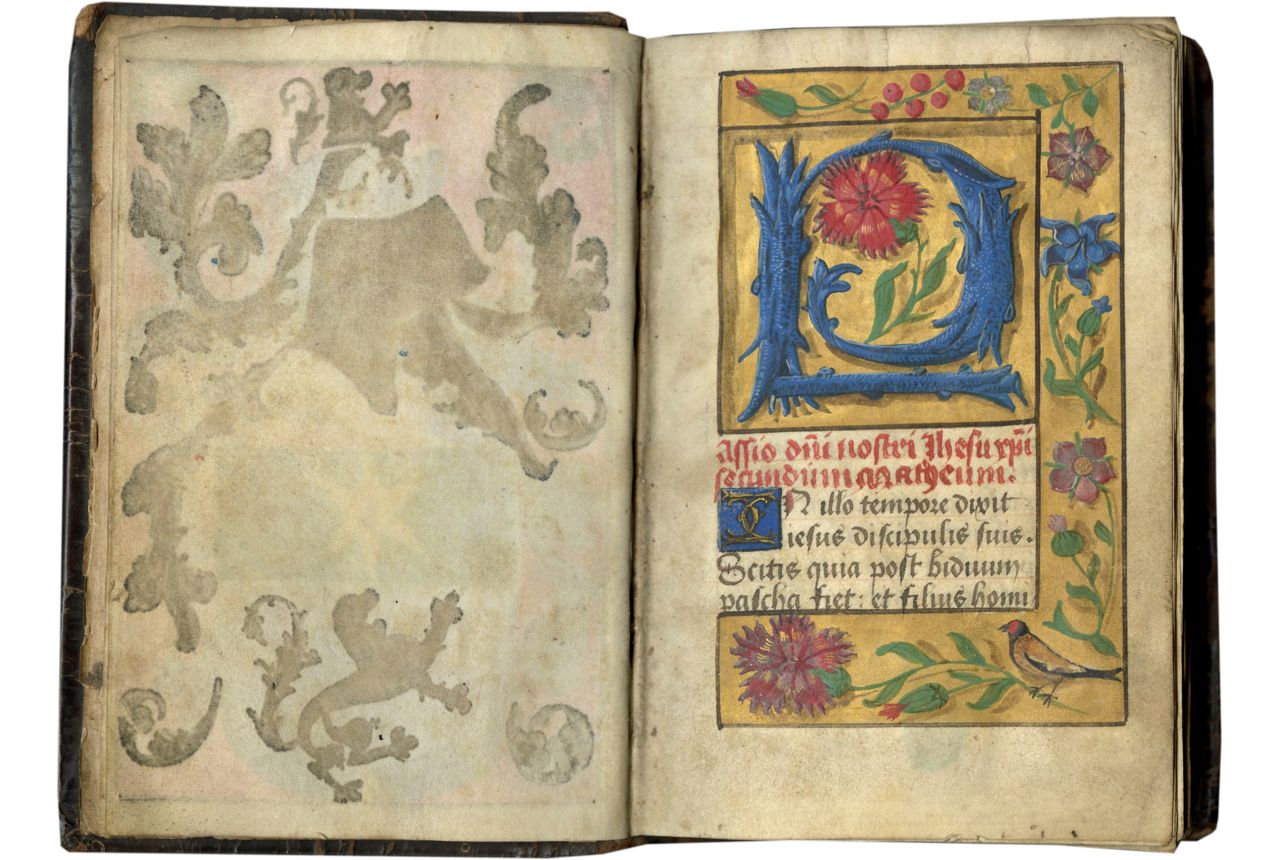 P
assio dñi nostri Jhesu xpi
secundum Matheum.
IN illo tempore dixit
iesus discipulis suis.
Scitis quia post biduum
pascha fiet: et filius homi